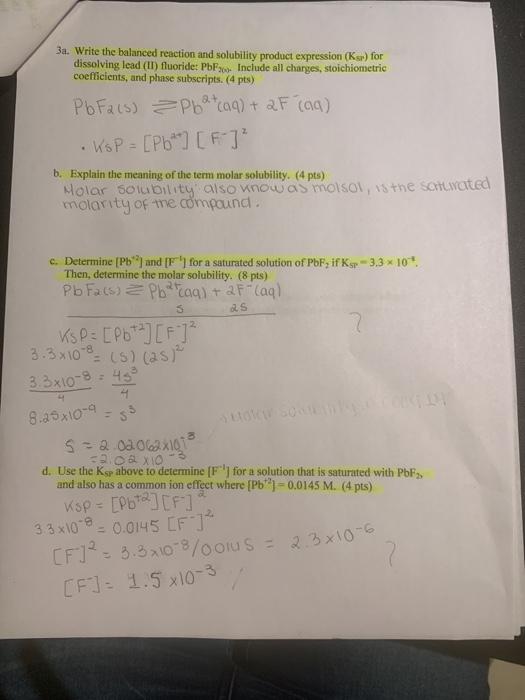 3a. Write the balanced reaction and solubility product expression (KSP) for
dissolving lead (II) fluoride: PbF2(s). Include all charges, stoichiometric
coefficients, and phase subscripts. (4 pts)
PbF2(s) ⇌ Pb²⁺(aq) + 2F⁻(aq)
• KsP = [Pb²⁺] [F⁻]²
b. Explain the meaning of the term molar solubility. (4 pts)
Molar solubility also know as molsol, is the saturated
molarity of the compound.
c. Determine [Pb⁺²] and [F⁻¹] for a saturated solution of PbF₂ if KSP = 3.3 × 10⁻⁸.
Then, determine the molar solubility. (8 pts)
PbF2(s) ⇌ Pb²⁺(aq) + 2F⁻(aq)
S 2S
KsP = [Pb⁺²][F⁻]²
?
3.3x10⁻⁸ = (S) (2S)²
3.3x10⁻⁸ = 4S³
4 4
8.25x10⁻⁹ = S³
S = 2.02062x10⁻³
= 2.02 x10⁻³
d. Use the KSP above to determine [F⁻¹] for a solution that is saturated with PbF₂,
and also has a common ion effect where [Pb⁺²] = 0.0145 M. (4 pts)
Ksp = [Pb⁺²][F⁻]²
3.3x10⁻⁸ = 0.0145 [F⁻]²
[F⁻]² = 3.3x10⁻⁸/0.0145 = 2.3x10⁻⁶
?
[F⁻] = 1.5 x10⁻³